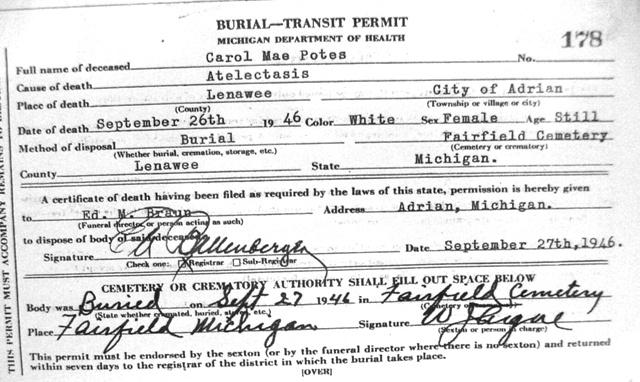 BURIAL—TRANSIT PERMIT
MICHIGAN DEPARTMENT OF HEALTH
178
Full name of deceased Carol Mae Potes No.
Cause of death Atelectasis
Place of death Lenawee City of Adrian
(County) (Township or village or city)
Date of death September 26th 1946 Color White Sex Female Age Still
Method of disposal Burial Fairfield Cemetery
(Whether burial, cremation, storage, etc.) (Cemetery or crematory)
County Lenawee State Michigan.
A certificate of death having been filed as required by the laws of this state, permission is hereby given
to Ed. M. Braun Address Adrian, Michigan.
(Funeral director or person acting as such)
to dispose of body of said deceased.
Signature Date September 27th, 1946.
Check one: Registrar Sub-Registrar
CEMETERY OR CREMATORY AUTHORITY SHALL FILL OUT SPACE BELOW
Body was Buried on Sept 27 1946 in Fairfield Cemetery
(State whether cremated, buried, stored, etc.) (Cemetery or crematory)
Place Fairfield Michigan Signature
(Sexton or person in charge)
This permit must be endorsed by the sexton (or by the funeral director where there is no sexton) and returned
within seven days to the registrar of the district in which the burial takes place.
[OVER]
THIS PERMIT MUST ACCOMPANY REMAINS TO